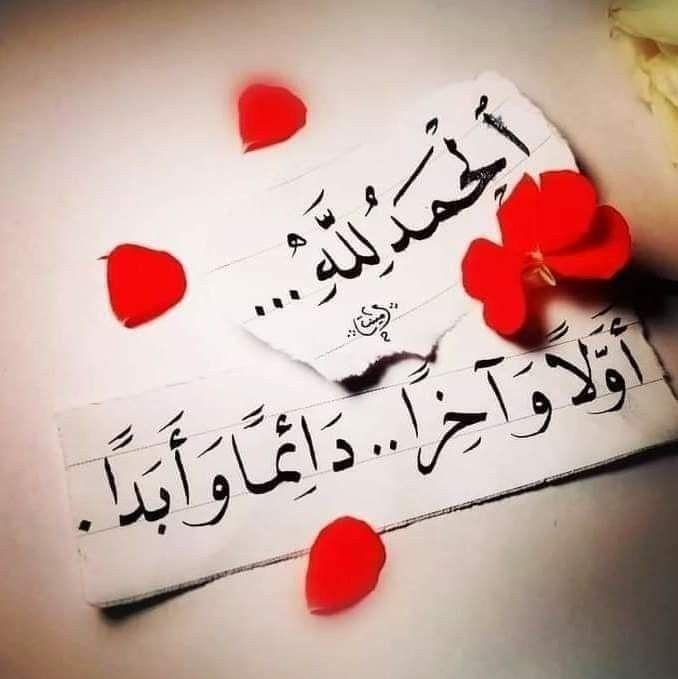 اَلْحَمْدُ لِلَّهِ...
أَوَّلًا وَآخِرًا.. دَائِمًا وَأَبَدًا.